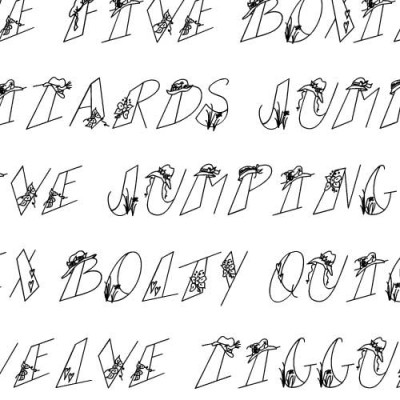 E FIVE BOXI
IZARDS JUMP
IVE JUMPING
IX BOLTY QUIC
WELVE ZIGGU